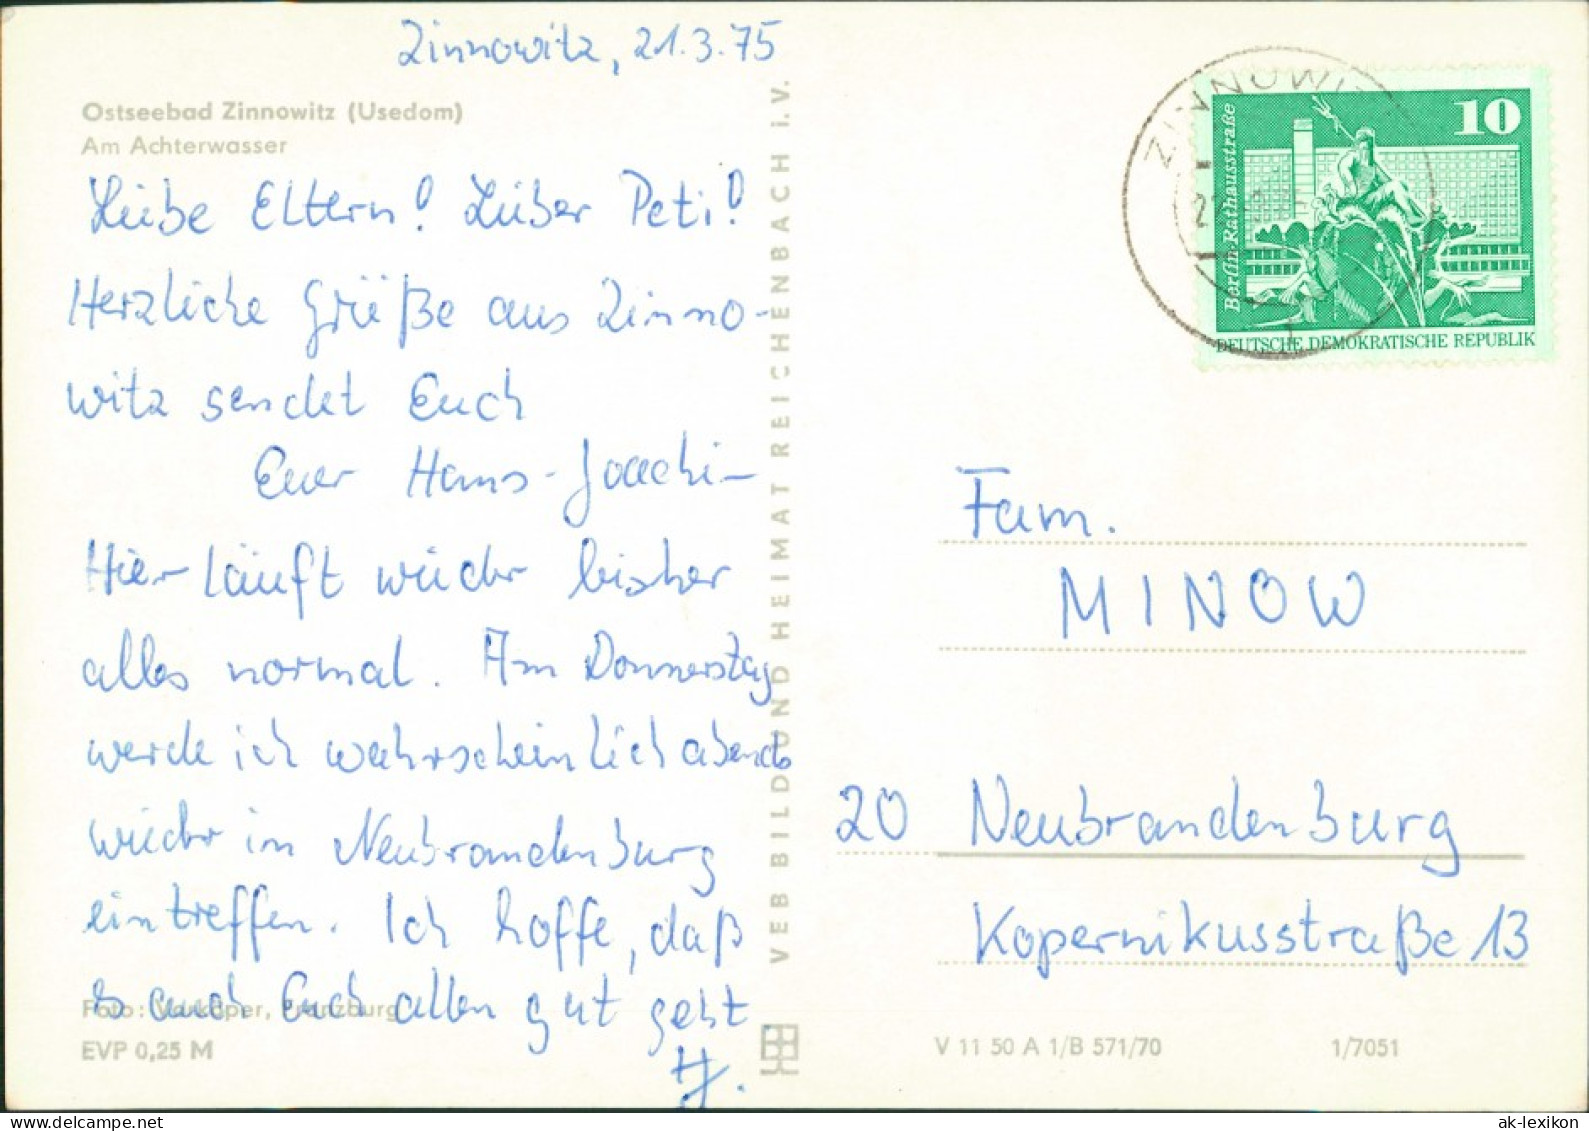 Zinnowitz, 21.3.75
Ostseebad Zinnowitz (Usedom)
Am Achterwasser
Liebe Eltern! Lieber Peti!
Herzliche Grüße aus Zinno-
witz sendet Euch
Euer Hans-Joachi
Hier läuft wieder bisher
alles normal. Am Donnerstag
werde ich wahrscheinlich abends
wieder in Neubrandenburg
eintreffen. Ich hoffe, daß
es auch Euch allen gut geht.
HJ.
Foto: Worköper, Franzburg
EVP 0,25 M
VEB BILD UND HEIMAT REICHENBACH i.V.
ZINNOWITZ
10
Berlin-Rathausstraße
DEUTSCHE DEMOKRATISCHE REPUBLIK
Fam.
MINOW
20 Neubrandenburg
Kopernikusstraße 13
V 11 50 A 1/B 571/70
1/7051
ak-lexikon